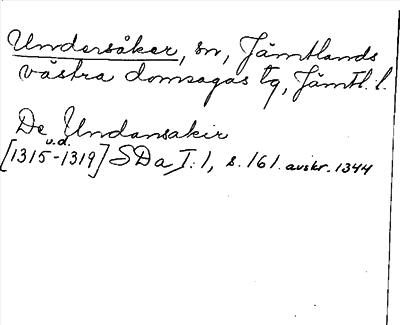 Undersåker, sn, Jämtlands
västra domsagas tg, Jämtl. l.
De Undansakir
u.d.
[1315-1319] SDa I:1, s. 161. avskr. 1344